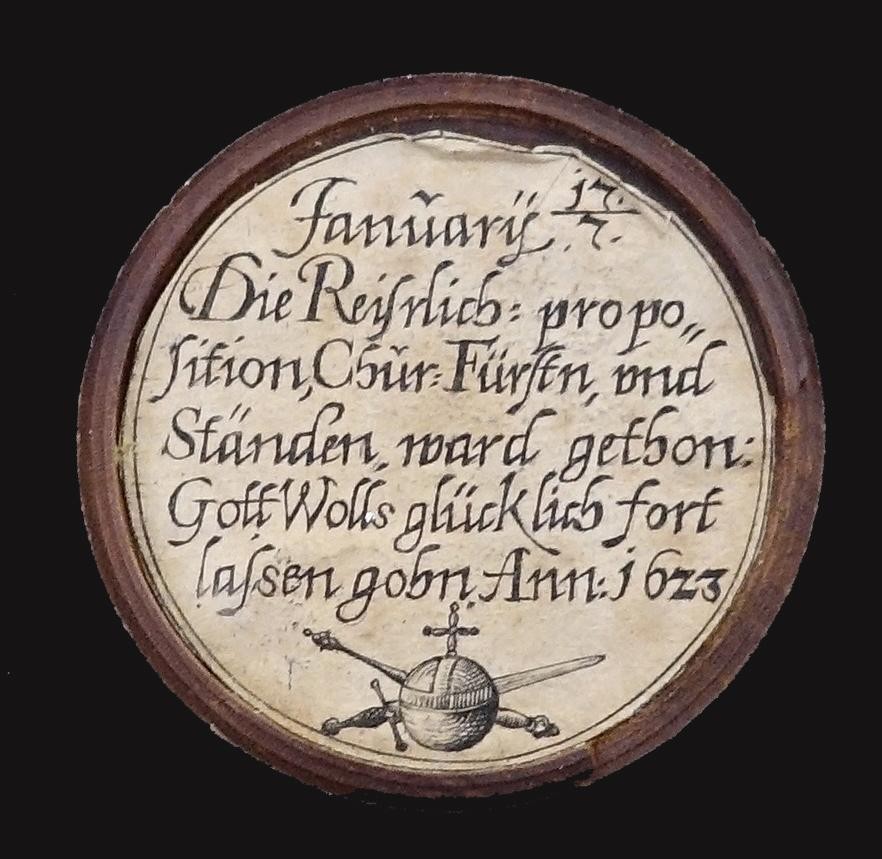 Januarÿ 17./7.
Die Keÿsrlich: propo„
sition, Chŭr: Fürstn, vnd
Ständen, ward gethon:
Gott Wolls glücklich fort
lassen gohn Ann: 1623